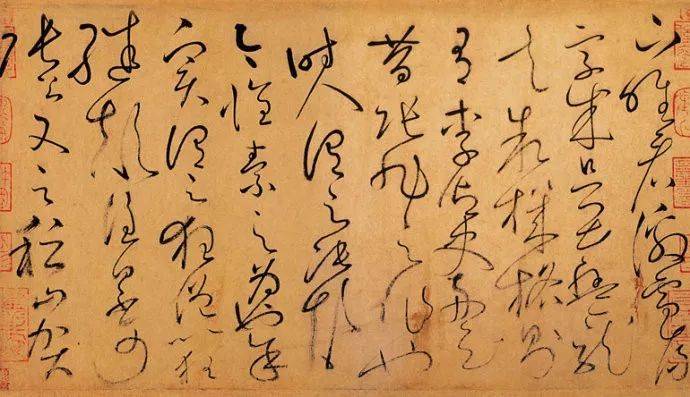 下唯看激電流
字成只畏盤龍
走叙機格則
有李御史舟云
昔張旭之作也
時人謂之張顛
今懷素之為也余
實謂之狂僧以狂
繼顛誰曰不可
張公又云稽山賀